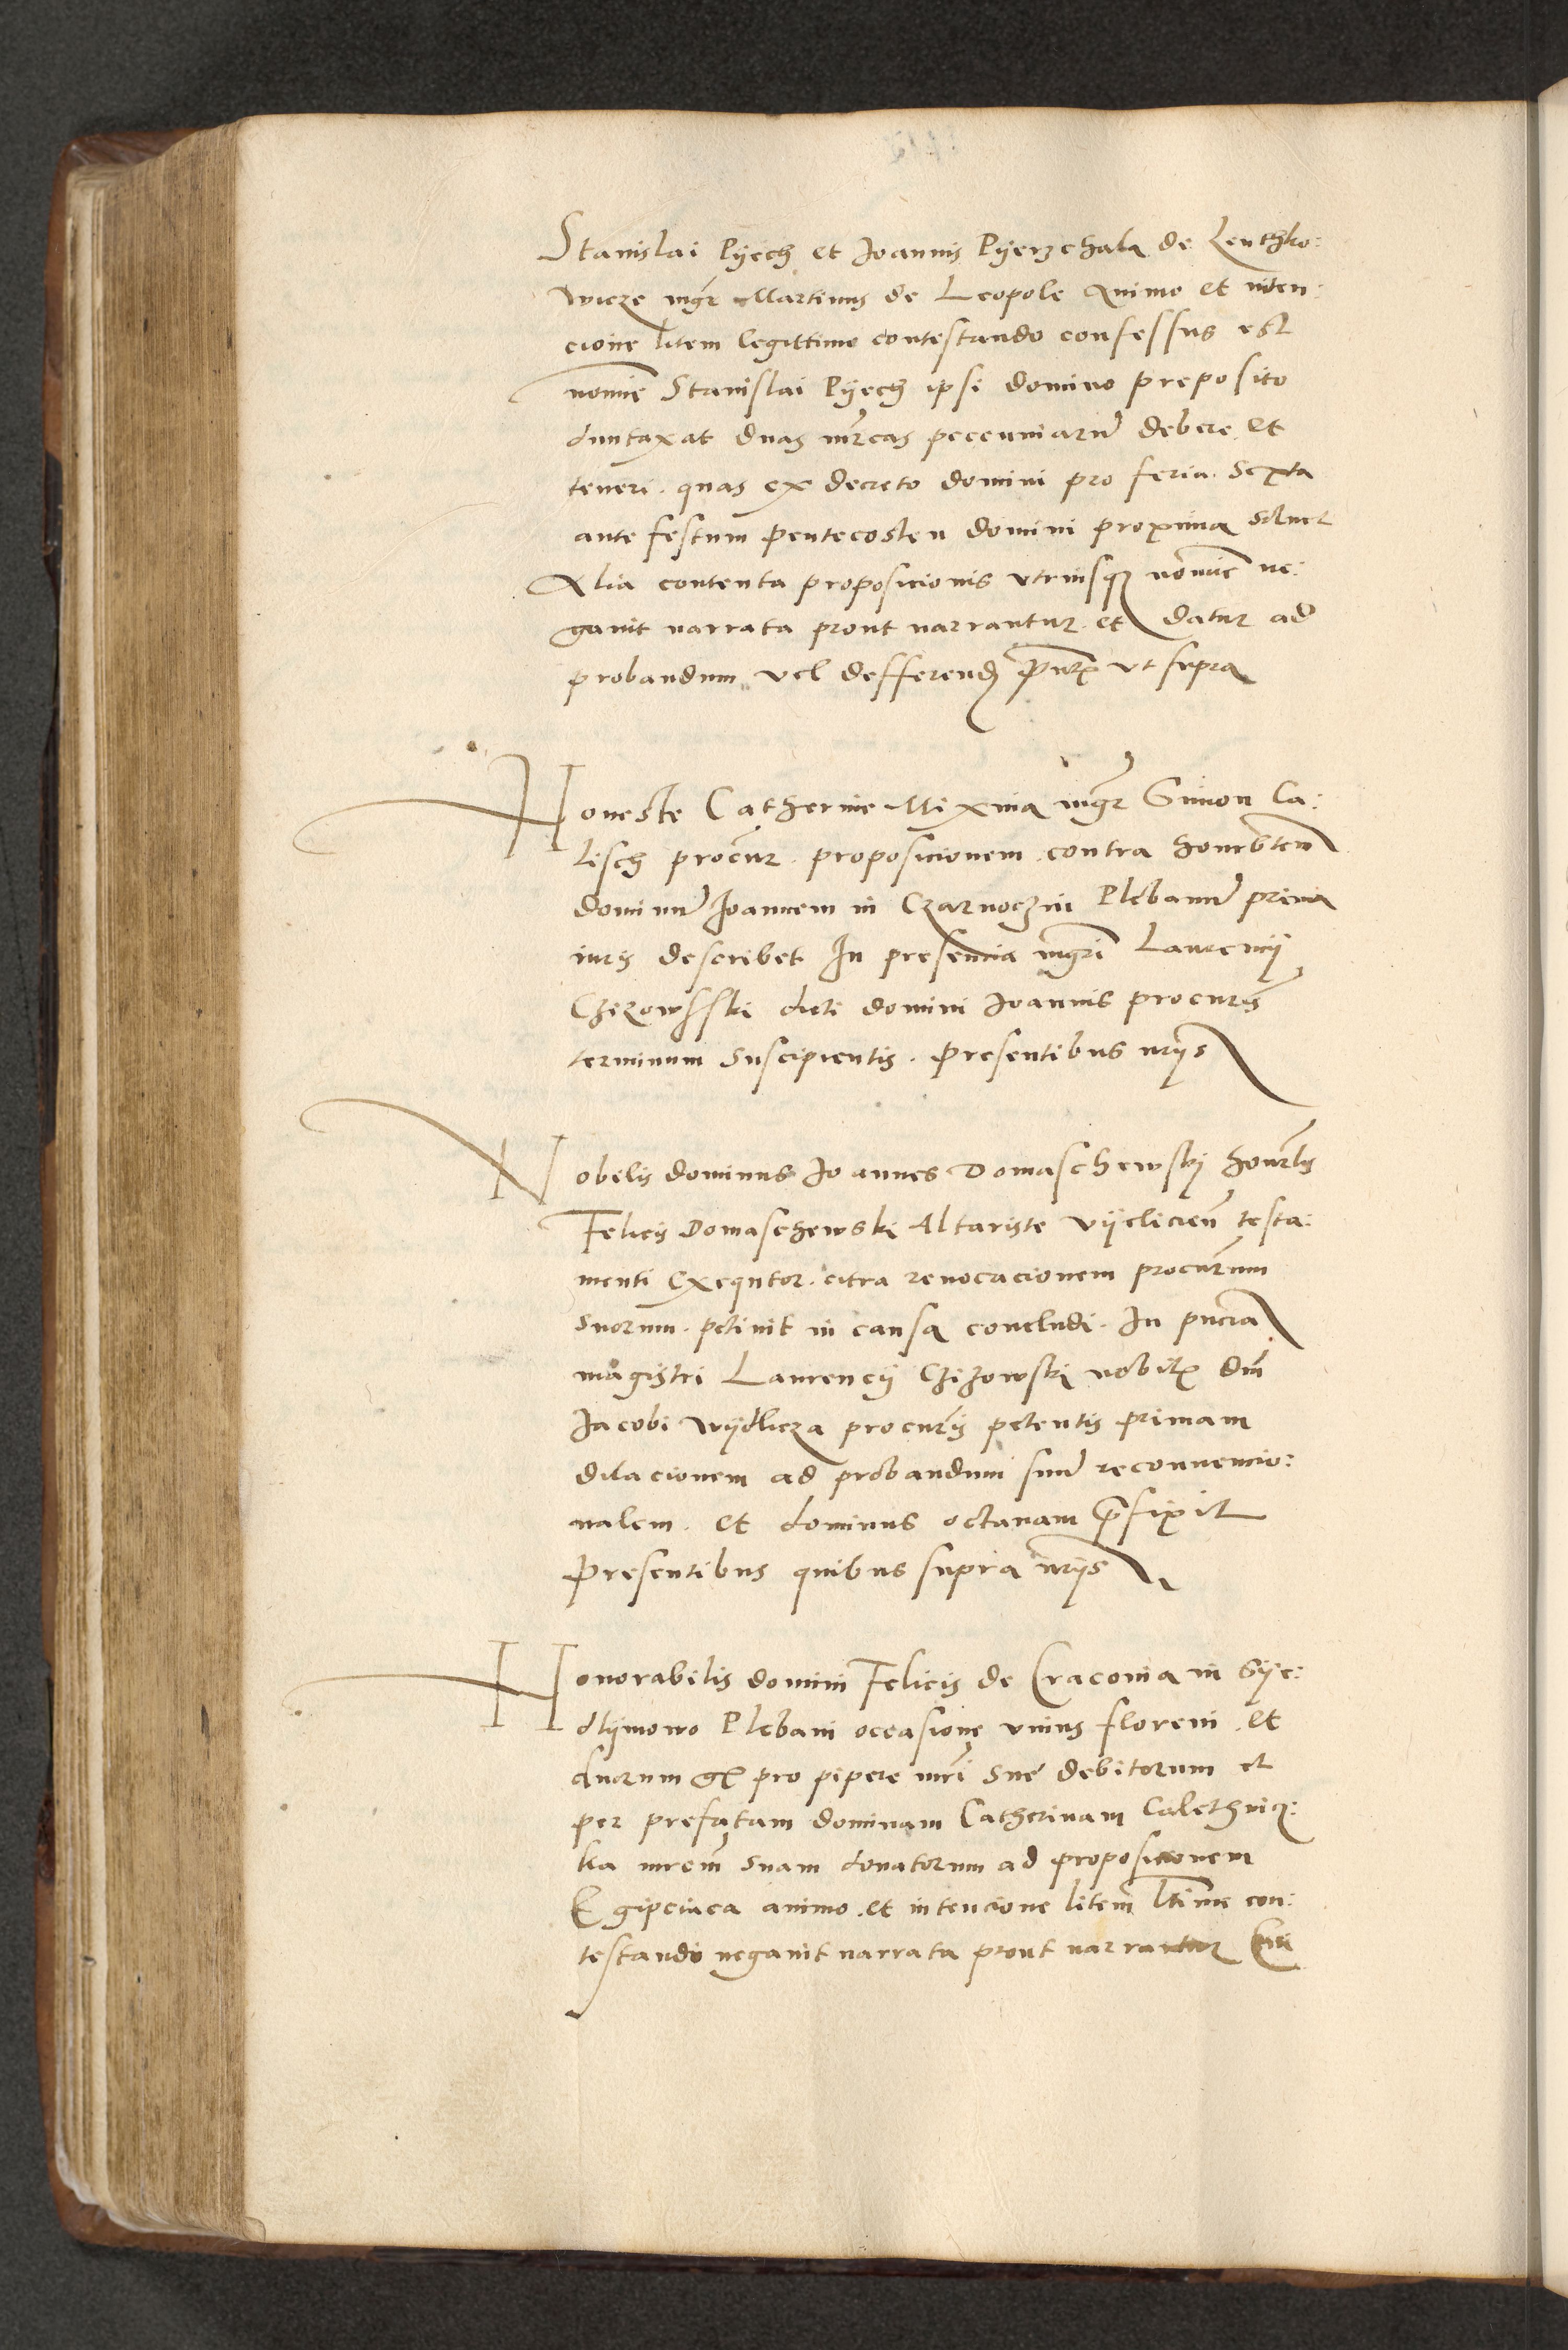 Stanislai Pyech et Joannis Pyerzchala de Lenthko:
wicze mgr Martinus de Leopole Animo et inten:
cione litem legittime contestando confessus est
nomie Stanislai Pyech ipsi domino preposito
duntaxat duas mrcas peccuniarum debere et
teneri. quas ex decreto domini pro feria sexta
ante festum Pentecosten domini proxima solvet
Alia contenta proposicionis utriusque nomine ne:
gavit narrata prout narrantur. et datur ad
probandum vel defferend prntp ut supra
Honeste Catherine Mixina mgr Simon Ca:
lisch procur. proposicionem contra honorbilem
dominum Joannem in Czarnoczin Plebanum prima
iuris describet In presencia mgri Laurencij
Czizowsski dicti domini Joannis procuris
terminum suscipientis. Presentibus nrijs
Nobilis dominus Joannes Domaschewski honorblis
Felicis Domaschewski Altariste Vijelicien testa:
menti Exequtor. citra revocacionem procurum
suorum. petivit in causa concludi. In pncia
magistri Laurencij Czizowski nobilis dni
Jacobi Wijdlicza procuris petentis primam
dilacionem ad probandum suum reconvencio:
nalem. et dominus octavam prefixit
Presentibus quibus supra nrijs
Honorabilis domini Felicis de Cracovia in Syc:
dlijmowo Plebani occasione unius floreni. et
duorum gr pro pipere mri sue debitorum et
per prefatam dominam Catherinam Calethnicz:
ka mrem suam donatorum ad proposicionem
Egipciaca animo. et intencione litem ltime con:
testando negavit narrata prout narrantur Cui